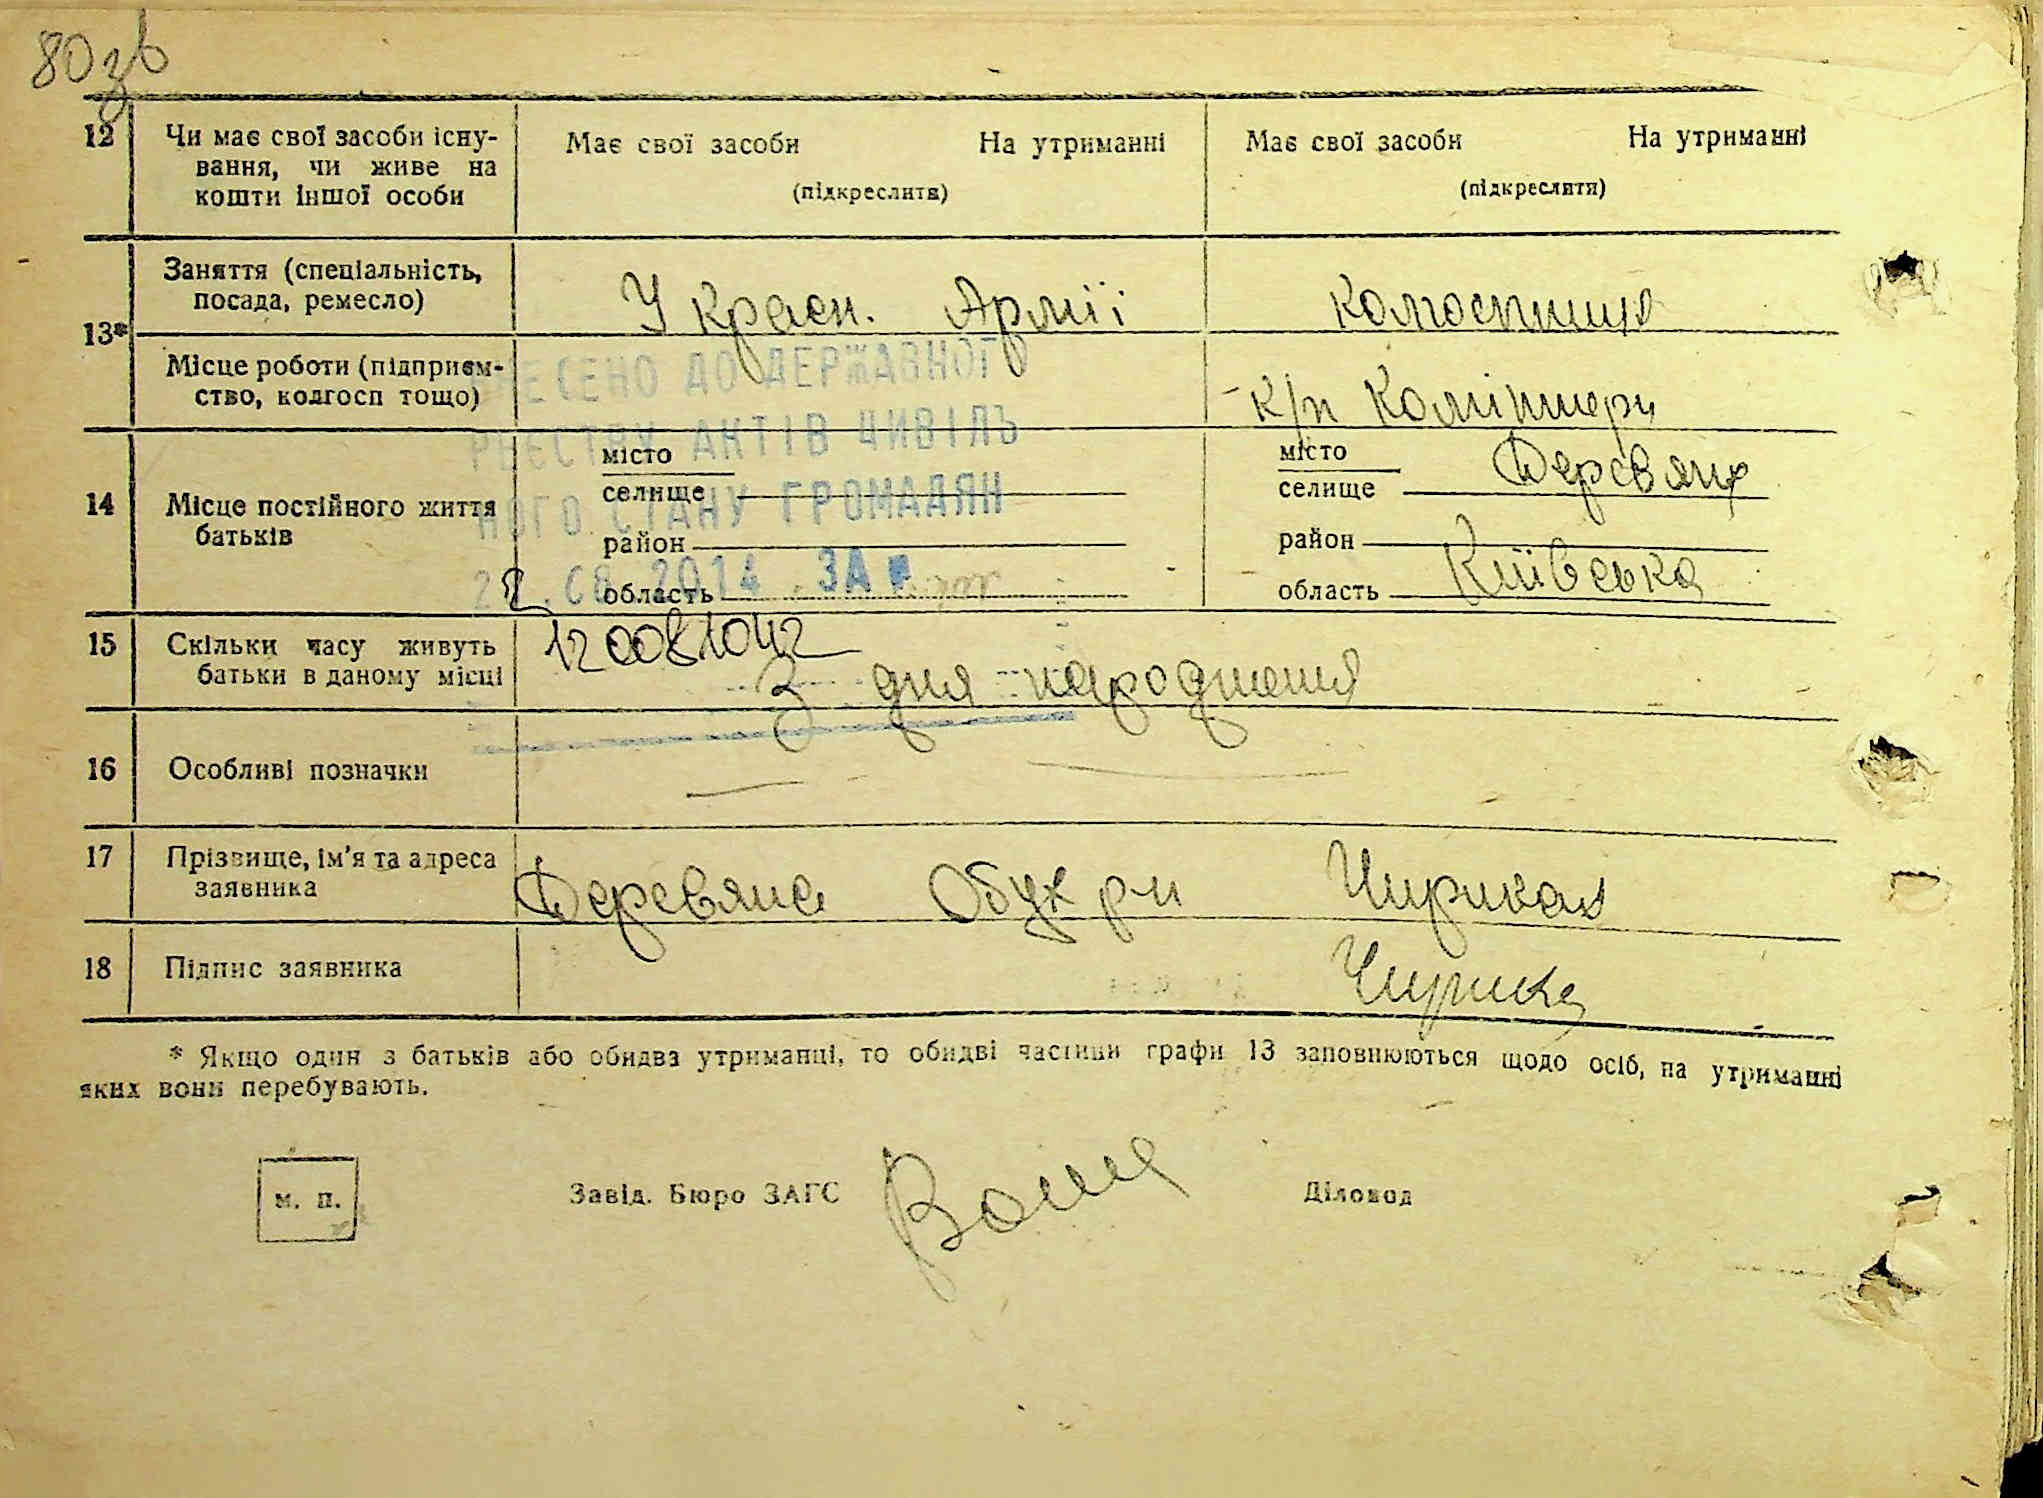 80зв
12 Чи має свої засоби існу-
вання, чи живе на
кошти іншої особи
Має свої засоби На утриманні
(підкреслити)
Має свої засоби На утриманні
(підкреслити)
13*
Заняття (спеціальність,
посада, ремесло)
У Красн. Армії
колгоспниця
Місце роботи (підприєм-
ство, колгосп тощо)
к/п Комінтерн
ВНЕСЕНО ДО ДЕРЖАВНОГО
РЕЄСТРУ АКТІВ ЦИВІЛЬ
НОГО СТАНУ ГРОМАДЯН
2014 ЗА №
14 Місце постійного життя
батьків
місто
селище
район
область
місто
селище Деревяна
район
область Київська
15 Скільки часу живуть
батьки в даному місці
З дня народження
16 Особливі позначки
17 Прізвище, ім'я та адреса
заявника
Деревяна Обух р-н
18 Підпис заявника
* Якщо один з батьків або обидва утриманці, то обидві частини графи 13 заповнюються щодо осіб, на утриманні
яких вони перебувають.
м. п.
Завід. Бюро ЗАГС
Діловод